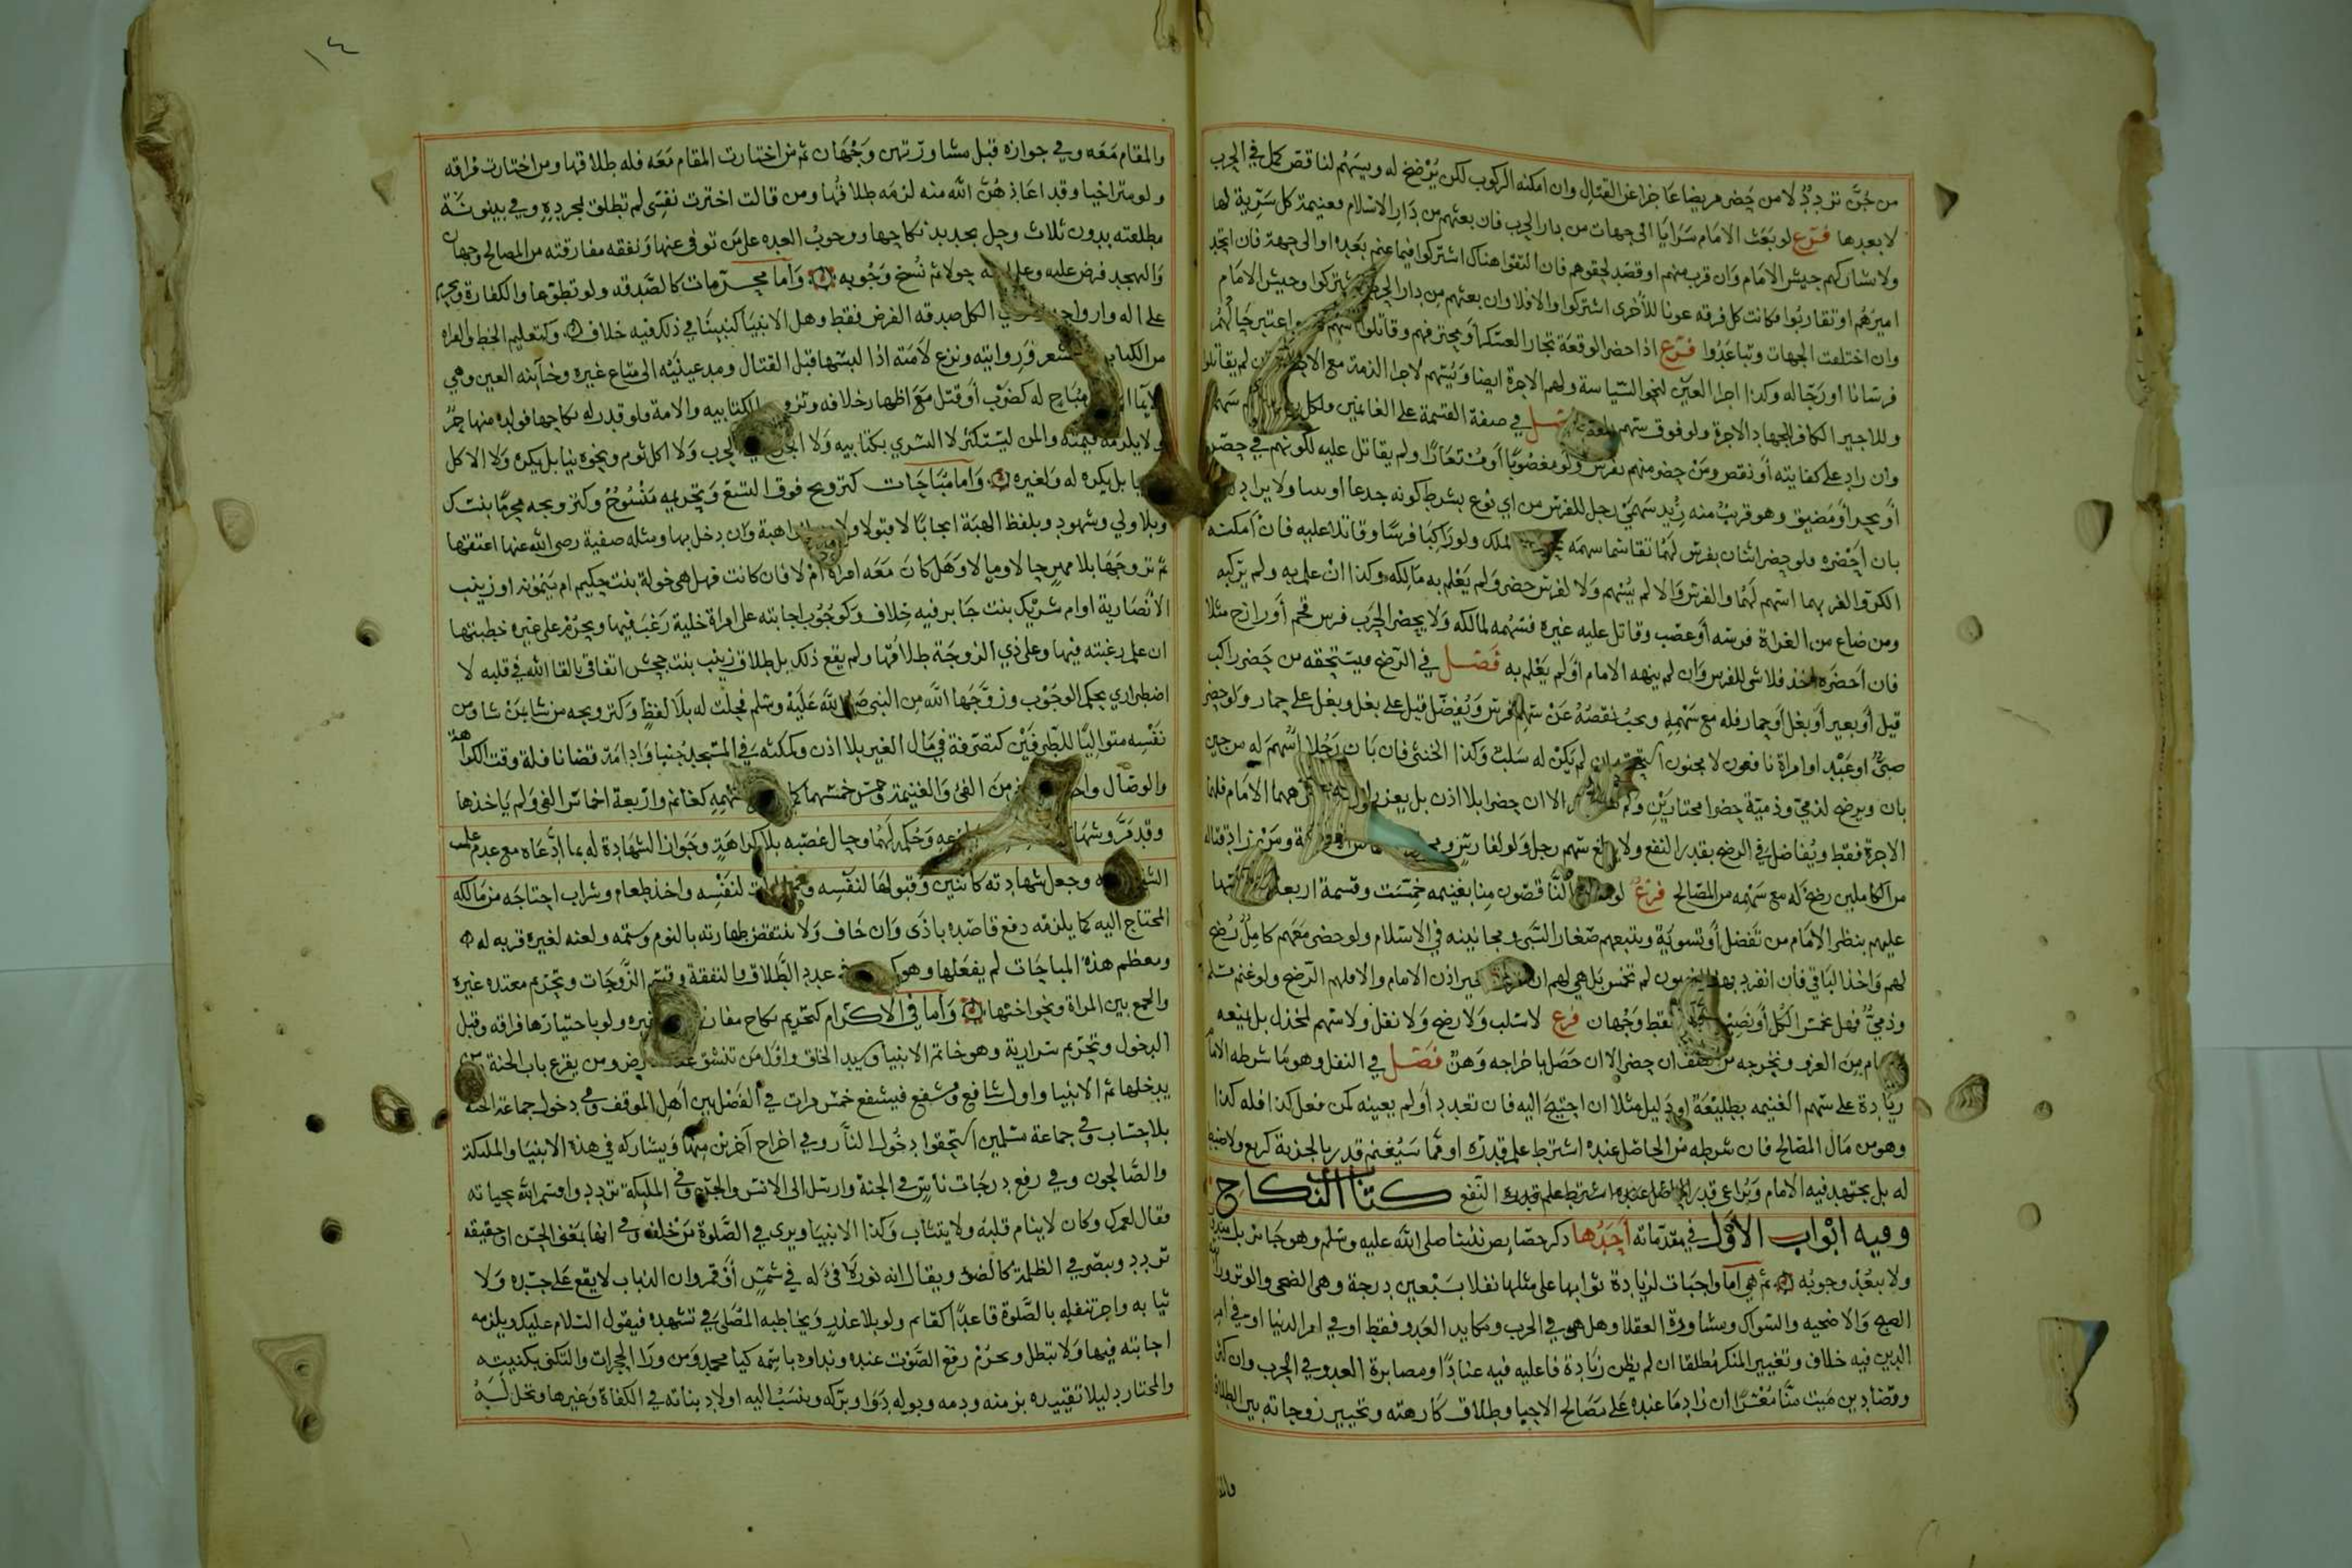 من جُنَّ تردد لا من حضر مريضا عاجزا عن القتال وان امكنه الركوب لكن يُرضخ له ويسهم لناقص كمل في الحرب
لا بعدها فرع لو بعث الامام سرايا الى جهات من دار الحرب فان بعثهم من دار الاسلام فغنيمة كل سرية لها
ولا يشاركهم جيش الامام وان قرب منهم او قصد لحوقهم فان التقوا هناك اشتركوا فيما غنم بعده او الى جهة فان اتحد
اميرهم او تقاربوا وكانت كل فرقه عونا للاخرى اشتركوا والا فلا وان بعثهم من دار الحرب اشتركوا وجيش الامام
وان اختلفت الجهات وتباعدوا فرع اذا حضر الوقعة تجار العسكر او محترفهم وقاتلوا اسهم واعتبر حالهم
فرسانا او رجاله وكذا اجرا العين لنحو السياسة ولهم الاجرة ايضا ويسهم لاجرا الذمة مع لم يقاتلوا
وللاجير الكافر للجهاد الاجرة ولو فوق سهم فصل في صفة القسمة على الغانمين ولكل سهم
وان زاد على كفايته او نقص ومن حضر منهم بفرس ولو مغصوبا او مستعارا ولم يقاتل عليه لكونهم في حصن
او بحر او مضيق وهو قريب منه زيد سهمي رجل للفرس من اي نوع بشرط كونه جدعا او ولا يزاد
بان احضره ولو حضر اثنان بفرس لهما تقاسما سهمه الملك ولو ركبا فرسا وقاتلا عليه فان امكنه
الكر والفر بهما اسهم لهما والفرس والا لم يسهم ولا لفرس حضر ولم يعلم به مالكه وكذا ان علم به ولم يركبه
ومن ضاع من الغزاة فرسه او غصب وقاتل عليه غيره فسهمه لمالكه ولا يحضر الحرب فرس قحم او رازح مثلا
فان احضره احد فلا شي للفرس وان لم ينهه الامام او لم يعلم به فصل في الرضخ فيستحقه من حضر راكب
فيل او بعير او بغل او حمار فله مع سهمه ويجب نقصه عن سهم فرس ويفضل فيل على بغل وبغل على حمار ولو حضر
صبي او عبد او امراة نافعون لا مجنون لم يكن له سلب وكذا الخنثى فان بان رجلا اسهم له من حين
بان ويرضخ لذمي وذمية حضرا مختارين الا ان حضرا بلا اذن بل يعزر الامام فلهما
الاجرة فقط ويفاضل في الرضخ بقدر النفع ولا يبلغ سهم رجل ولو لفارس ومن زاد قتاله
من الكاملين رضخ له مع سهمه من المصالح فرع لو الناقصون منا بغنيمه خمست وقسمة اربعة
عليهم بنظر الامام من تفضيل او تسوية ويتبعهم صغار السبي ومجانينه في الاسلام ولو حضر معهم كامل رضخ
لهم واخذ الباقي فان انفرد بها لم تخمس بل هي لهم ان اذن الامام والا فلهم الرضخ ولو غنم مسلم
وذمي فهل يخمس الكل او نصيب فقط وجهان فرع لا سلب ولا رضخ ولا نفل ولا سهم لمخذل بل يمنعه
من الغزو ويخرجه من الصف ان حضر الا ان حصل باخراجه وهن فصل في النفل وهو ما شرطه الامام
زيادة على سهم الغنيمه بطليعة او دليل مثلا ان احتيج اليه فان تعدد او لم يعينه كمن فعل كذا فله كذا
وهو من مال المصالح فان شرطه من الحاصل عنده اشترط علم قدره او مما سيغنم قدر بالجزية كربع
له بل يجتهد فيه الامام ويراعي قدر الحاصل عنده اشترط علم قدره النفع كتاب النكاح
وفيه ابواب الاول في مقدماته احدها ذكر خصايص نبينا صلى الله عليه وسلم وهو جائز بل
ولا يبعد وجوبه ثم هي اما واجبات لزيادة ثوابها على مثلها نفلا بسبعين درجة وهي الضحى والوتر
الصبح والاضحيه والسواك ومشاورة العقلا وهل هو في الحرب ومكايد العدو فقط او في امر الدنيا او في امر
الدين فيه خلاف وتغيير المنكر مطلقا ان لم يظن زيادة فاعليه فيه عنادا ومصابرة العدو في الحرب وان
وقضا دين ميت منا معسرا ان زاد ما عنده على مصالح الاحيا وطلاق كارهته وتخيير زوجاته بين الطلاق
١٤
والمقام معه وفي جوازه قبل مشاورتهن وجهان ثم من اختارت المقام معه فله طلاقها ومن اختارت فراقه
ولو متراخيا وقد اعاذهن الله منه لزمه طلاقها ومن قالت اخترت نفسي لم تطلق لمجرده وفي بينونة
مطلقته بدون ثلاث وحل تجديد نكاحها ووجوب العده على من توفي عنها ونفقه مفارقته من المصالح وجهان
والتهجد فرض عليه وعلى حولا ثم نسخ وجوبه واما محرمات كالصدقه ولو تطوعا والكفارة
على اله الكل صدقه الفرض فقط وهل الانبيا كنبينا في ذلك فيه خلاف وكتعليم الخط والقراه
من الكتاب الشعر وروايته ونزع لامته اذا لبسها قبل القتال ومد عينيه الى متاع غيره وخاينه العين وهي
الايما مباح له كضرب او قتل مع اظهار خلافه وتزوج الكتابيه والامة ولو قدر له نكاحها فولده منها حر
ولا يلزمه قيمته والمن ليستكثر لا التسري بكتابيه ولا الحرب ولا اكل ثوم ونحوه نيا بل يكره ولا الاكل
بل يكره له ولغيره واما مباحات كتزويج فوق التسع وتحريمه منسوخ وكتزويجه محرما بنتك
وبلا ولي وشهود وبلفظ الهبة ايجابا لا قبولا ولا هبة وان دخل بها ومثله صفية رضي الله عنها اعتقها
ثم تزوجها بلا مهر حالا ومالا وهل كان معه امراة ام لا فان كانت فهل هي خولة بنت حكيم ام ميمونة او زينب
الانصارية او ام شريك بنت جابر فيه خلاف وكوجوب اجابته على امراة خلية رغب فيها ويحرم على غيره خطبتها
ان علم رغبته فيها وعلى ذي الزوجة طلاقها ولم يقع ذلك بل طلاق زينب بنت جحش اتفاقي بالقا الله في قلبه لا
اضطراري بحكم الوجوب وزوجها الله من النبي صلى الله عليه وسلم فحلت له بلا لفظ وكتزويجه من شا بمن شا ومن
نفسه متواليا للطرفين كتصرفة في مال الغير بلا اذن وكمكثه في المسجد جنبا وادامة قضا نافلة وقت الكراهة
والوصال من الفي والغنيمة وخمس خمسهما سهمه كغانم واربعة اخماس الفي ولم ياخذها
وقد مر وشهاد وحكمه لهما وحال غضبه بلا كراهة وجواز الشهادة له بما ادعاه مع عدم علم
وجعل شهادته كاثنين وقبولها لنفسه لنفسه واخذ طعام وشراب احتاجه من مالكه
المحتاج اليه كما يلزمه دفع قاصده باذى وان خاف ولا تنتقض طهارته بالنوم وشتمه ولعنه لغيره قربه له
ومعظم هذه المباحات لم يفعلها وهو في عدد الطلاق والنفقة وقسم الزوجات وتحريم معتده غيره
والجمع بين المراة ونحو اختها واما في الاكرام كتحريم نكاح مفارقته غيره ولو باختيارها فراقه وقبل
الدخول وتحريم سرارية وهو خاتم الانبيا وسيد الخلق واول من تنشق عنه الارض ومن يقرع باب الجنة
يدخلها ثم الانبيا واول شافع ومشفع فيشفع خمس مرات في الفصل بين اهل الموقف وفي دخول جماعة الجنة
بلا حساب وفي جماعة مسلمين استحقوا دخول النار وفي اخراج آخرين منها ويشاركه في هذه الانبيا والملئكة
والصالحون وفي رفع درجات ناس في الجنة وارسل الى الانس والجن وفي الملئكة تردد واقسم الله بحياته
فقال لعمرك وكان لا ينام قلبه ولا يتثاب وكذا الانبيا ويرى في الصلوة من خلفه وفي انها بمعنى الحس او حقيقه
تردد ويبصر في الظلمة كالضو ويقال انه نور لا في له في شمس او قمر وان الذباب لا يقع على جسده ولا
ثيابه واجر تنفله بالصلوة قاعدا كقائم ولو بلا عذر ويخاطبه المصلي في تشهده فيقول السلام عليك ويلزمه
اجابته فيها ولا تبطل ويحرم رفع الصوت عنده ونداوه باسمه كيا محمد ومن ورا الحجرات والتكنى بكنيته
والمختار دليلا تقييده بزمنه ودمه وبوله دوا وبركه وينسب اليه اولاد بناته في الكفاة وغيرها وتحل له